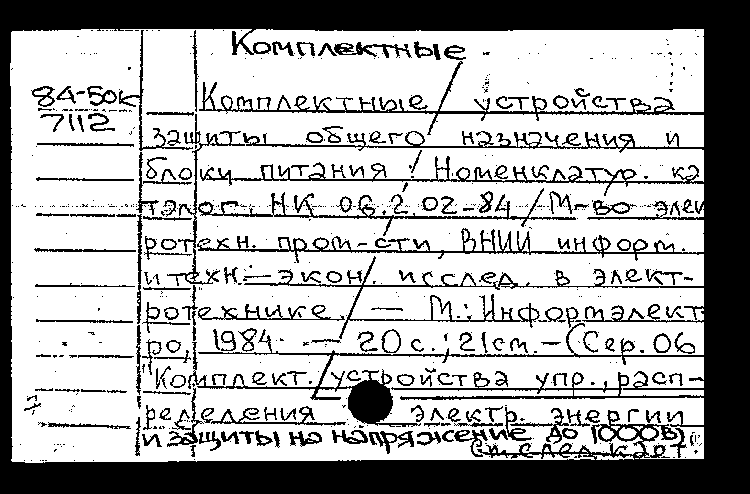 Комплектные
84-50к
7112
Комплектные устройства
защиты общего назначения и
блоки питания : Номенклатур. ка
талог. НК 06.2.02-84 / М-во элек
ротехн. пром-сти, ВНИИ информ.
и техн.-экон. исслед. в элект-
ротехнике. — М.: Информэлект
ро, 1984. — 20 с.; 21 см. — (Сер. 06
"Комплект. устройства упр., расп-
ределения электр. энергии
и защиты на напряжение до 1000В)
См. след. карт.